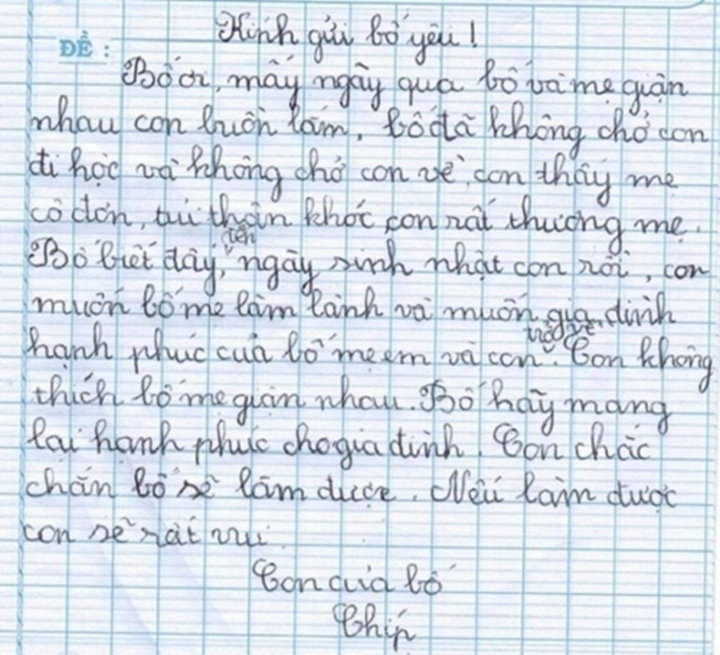 Kính gửi bố yêu!
ĐỀ:
Bố ơi, mấy ngày qua bố và mẹ giận
nhau con buồn lắm, bố đã không chở con
đi học và không chở con về, con thấy mẹ
cô đơn, tủi thân khóc con rất thương mẹ.
Bố biết đấy, đến ngày sinh nhật con rồi, con
muốn bố mẹ làm lành và muốn gia đình
hạnh phúc của bố mẹ em và con trở về. Con không
thích bố mẹ giận nhau. Bố hãy mang
lại hạnh phúc cho gia đình. Con chắc
chắn bố sẽ làm được. Nếu làm được
con sẽ rất vui.
Con của bố
Chíp